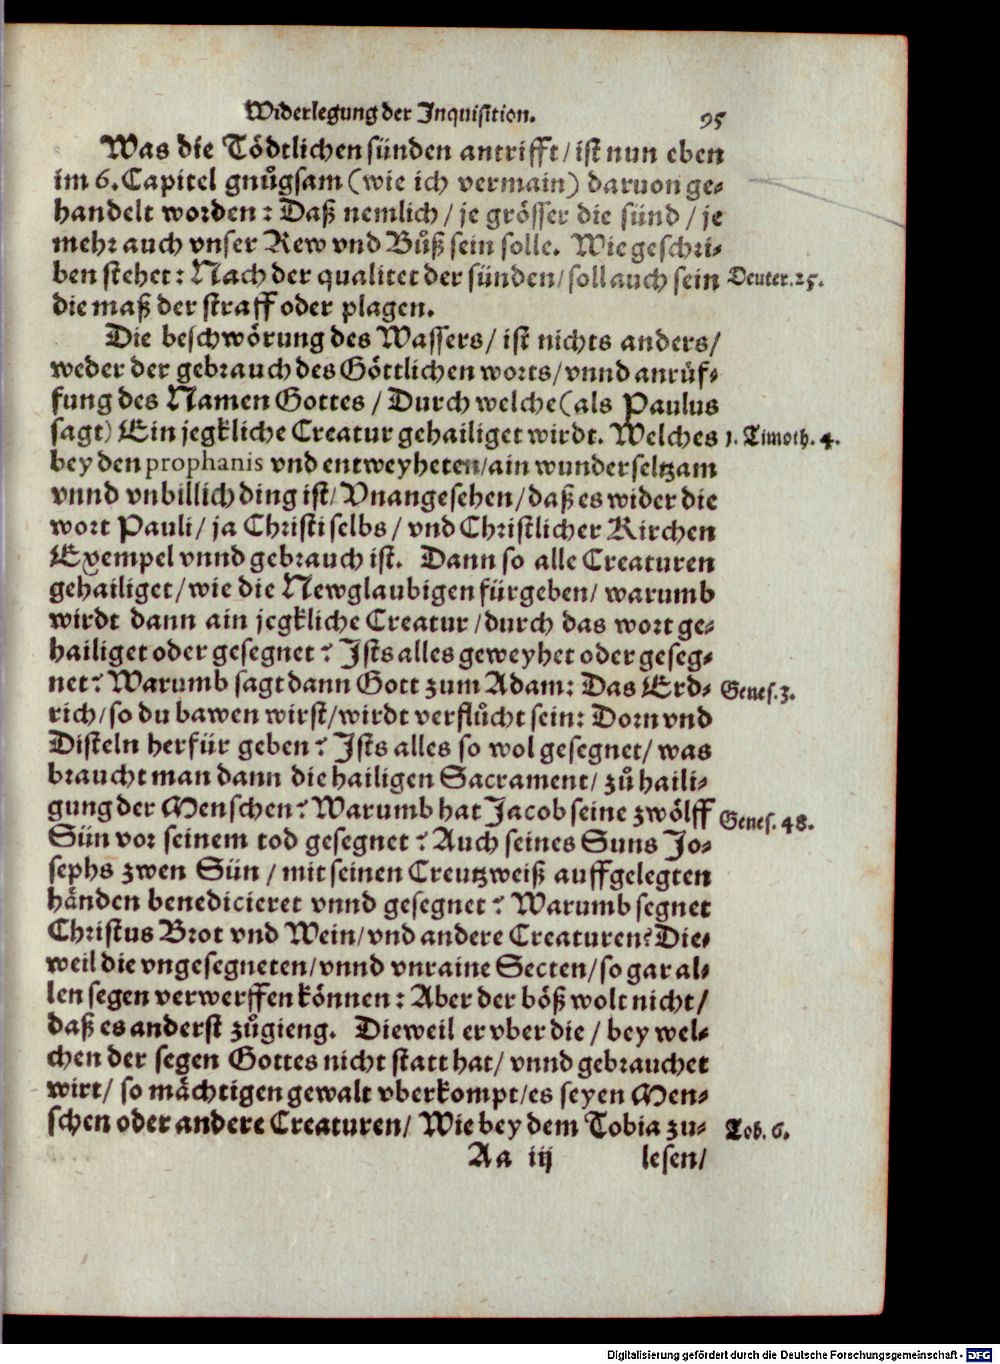 Widerlegung der Inquisition. 95
Was die Tödtlichen sünden antrifft/ ist nun eben
im 6. Capitel gnůgsam (wie ich vermain) daruon ge-
handelt worden: Daß nemlich/ je grösser die sünd/ je
mehr auch vnser Rew vnd Bůß sein solle. Wie geschri-
ben stehet: Nach der qualitet der sünden/ soll auch sein Deuter. 25.
die maß der straff oder plagen.
Die beschwörung des Wassers/ ist nichts anders/
weder der gebrauch des Göttlichen worts/ vnnd anrůf-
fung des Namen Gottes/ Durch welche (als Paulus
sagt) Ein jegkliche Creatur gehailiget wirdt. Welches 1. Timoth. 4.
bey den prophanis vnd entweyheten/ ain wunder seltzam
vnnd vnbillich ding ist/ Vnangesehen/ daß es wider die
wort Pauli/ ja Christi selbs/ vnd Christlicher Kirchen
Exempel vnnd gebrauch ist. Dann so alle Creaturen
gehailiget/ wie die Newglaubigen fürgeben/ warumb
wirdt dann ain jegkliche Creatur/ durch das wort ge-
hailiget oder gesegnet? Ists alles geweyhet oder geseg-
net? Warumb sagt dann Gott zum Adam: Das Erd- Genes. 3.
rich/ so du bawen wirst/ wirdt verflůcht sein: Dorn vnd
Disteln herfür geben? Ists alles so wol gesegnet/ was
braucht man dann die hailigen Sacrament/ zů haili-
gung der Menschen? Warumb hat Jacob seine zwölff Genes. 48.
Sün vor seinem tod gesegnet? Auch seines Suns Jo-
sephs zwen Sün/ mit seinen Creutzweiß auffgelegten
händen benedicieret vnnd gesegnet? Warumb segnet
Christus Brot vnd Wein/ vnd andere Creaturen? Die-
weil die vngesegneten/ vnnd vnraine Secten/ so gar al-
len segen verwerffen können: Aber der böß wolt nicht/
daß es anderst zůgieng. Dieweil er vber die/ bey wel-
chen der segen Gottes nicht statt hat/ vnnd gebrauchet
wirt/ so mächtigen gewalt vberkompt/ es seyen Men-
schen oder andere Creaturen/ Wie bey dem Tobia zu- Tob. 6.
Aa iij lesen/
Digitalisierung gefördert durch die Deutsche Forschungsgemeinschaft - DFG